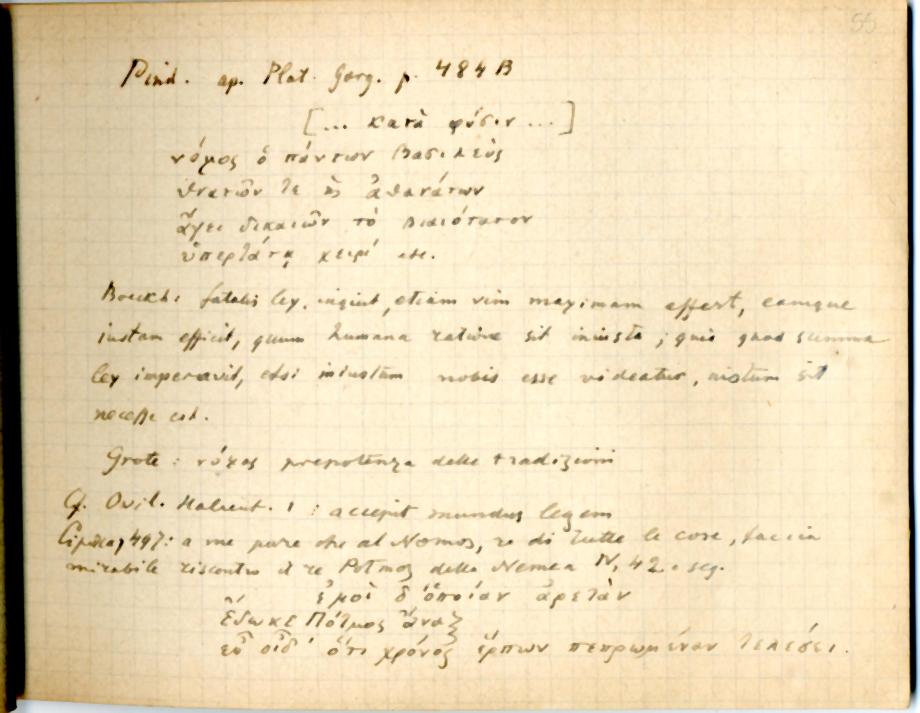 55
Pind. ap. Plat. Gorg. p. 484 B
[... κατὰ φύσιν ...]
νόμος ὁ πάντων βασιλεὺς
θνατῶν τε κ̀ ἀθανάτων
ἄγει δικαιῶν τὸ βιαιότατον
ὑπερτάτᾳ χειρί etc.
Boeckh: fatalis lex, inquit, etiam vim maximam affert, eamque
iustam efficit, quum humana ratione sit iniusta; quia quod summa
lex imperavit, etsi iniustum nobis esse videatur, iustum sit
necesse est.
Grote: νόμος prepotenza delle tradizioni
Cf. Ovid. Halieut. 1: accepit mundus legem
497: a me pare che al Nomos, re di tutte le cose, faccia
mirabile riscontro il re Potmos della Nemea IV, 42 e seg.
ἐμοὶ δ' ὁποίαν ἀρετὰν
ἔδωκε Πότμος ἄναξ
εὖ οἶδ' ὅτι χρόνος ἕρπων πεπρωμέναν τελέσει.